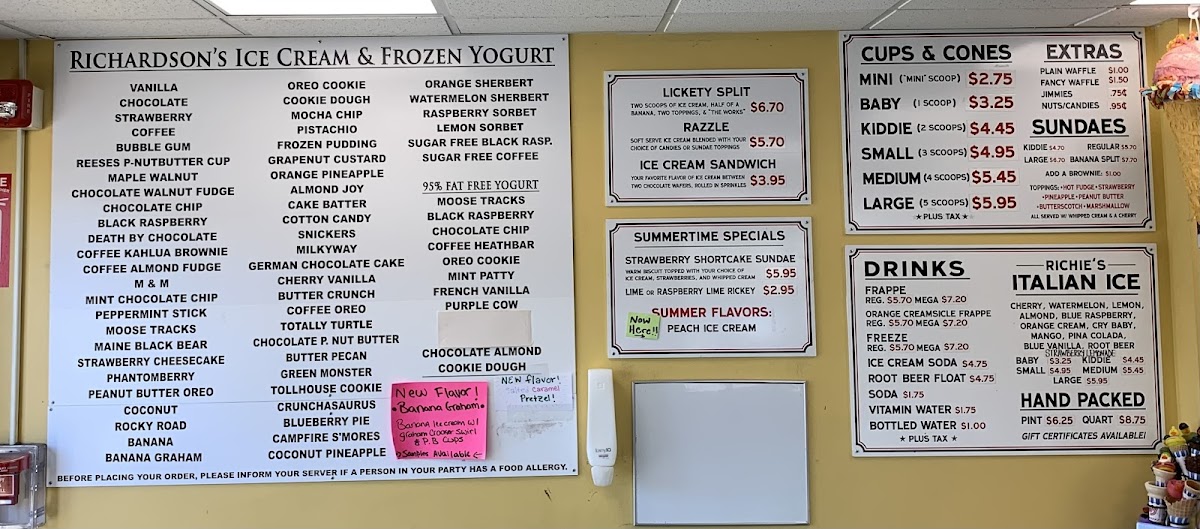 RICHARDSON'S ICE CREAM & FROZEN YOGURT
VANILLA
CHOCOLATE
STRAWBERRY
COFFEE
BUBBLE GUM
REESES P-NUTBUTTER CUP
MAPLE WALNUT
CHOCOLATE WALNUT FUDGE
CHOCOLATE CHIP
BLACK RASPBERRY
DEATH BY CHOCOLATE
COFFEE KAHLUA BROWNIE
COFFEE ALMOND FUDGE
M & M
MINT CHOCOLATE CHIP
PEPPERMINT STICK
MOOSE TRACKS
MAINE BLACK BEAR
STRAWBERRY CHEESECAKE
PHANTOMBERRY
PEANUT BUTTER OREO
COCONUT
ROCKY ROAD
BANANA
BANANA GRAHAM
OREO COOKIE
COOKIE DOUGH
MOCHA CHIP
PISTACHIO
FROZEN PUDDING
GRAPENUT CUSTARD
ORANGE PINEAPPLE
ALMOND JOY
CAKE BATTER
COTTON CANDY
SNICKERS
MILKYWAY
GERMAN CHOCOLATE CAKE
CHERRY VANILLA
BUTTER CRUNCH
COFFEE OREO
TOTALLY TURTLE
CHOCOLATE P. NUT BUTTER
BUTTER PECAN
GREEN MONSTER
TOLLHOUSE COOKIE
CRUNCHASAURUS
BLUEBERRY PIE
CAMPFIRE S'MORES
COCONUT PINEAPPLE
ORANGE SHERBERT
WATERMELON SHERBERT
RASPBERRY SORBET
LEMON SORBET
SUGAR FREE BLACK RASP.
SUGAR FREE COFFEE
95% FAT FREE YOGURT
MOOSE TRACKS
BLACK RASPBERRY
CHOCOLATE CHIP
COFFEE HEATHBAR
OREO COOKIE
MINT PATTY
FRENCH VANILLA
PURPLE COW
CHOCOLATE ALMOND
COOKIE DOUGH
New Flavor!
•Banana Graham•
Banana Ice cream w/
graham Cracker Swirl
& P.B Cups
Samples Available
NEW flavor!
Caramel
Pretzel!
BEFORE PLACING YOUR ORDER, PLEASE INFORM YOUR SERVER IF A PERSON IN YOUR PARTY HAS A FOOD ALLERGY.
LICKETY SPLIT
TWO SCOOPS OF ICE CREAM, HALF OF A
BANANA, TWO TOPPINGS, & "THE WORKS" $6.70
RAZZLE
SOFT SERVE ICE CREAM BLENDED WITH YOUR
CHOICE OF CANDIES OR SUNDAE TOPPINGS $5.70
ICE CREAM SANDWICH
YOUR FAVORITE FLAVOR OF ICE CREAM BETWEEN
TWO CHOCOLATE WAFERS, ROLLED IN SPRINKLES $3.95
SUMMERTIME SPECIALS
STRAWBERRY SHORTCAKE SUNDAE
WARM BISCUIT TOPPED WITH YOUR CHOICE OF
ICE CREAM, STRAWBERRIES, AND WHIPPED CREAM $5.95
LIME OR RASPBERRY LIME RICKEY $2.95
SUMMER FLAVORS:
Now
Here!!
PEACH ICE CREAM
CUPS & CONES
MINI ("MINI" SCOOP) $2.75
BABY (1 SCOOP) $3.25
KIDDIE (2 SCOOPS) $4.45
SMALL (3 SCOOPS) $4.95
MEDIUM (4 SCOOPS) $5.45
LARGE (5 SCOOPS) $5.95
★ PLUS TAX ★
EXTRAS
PLAIN WAFFLE $1.00
FANCY WAFFLE $1.50
JIMMIES .75¢
NUTS/CANDIES .95¢
SUNDAES
KIDDIE $4.70 REGULAR $5.70
LARGE $6.70 BANANA SPLIT $7.70
ADD A BROWNIE: $1.00
TOPPINGS: • HOT FUDGE • STRAWBERRY
•PINEAPPLE •PEANUT BUTTER
•BUTTERSCOTCH •MARSHMALLOW
ALL SERVED W/ WHIPPED CREAM & A CHERRY
DRINKS
FRAPPE
REG. $5.70 MEGA $7.20
ORANGE CREAMSICLE FRAPPE
REG. $5.70 MEGA $7.20
FREEZE
REG. $5.70 MEGA $7.20
ICE CREAM SODA $4.75
ROOT BEER FLOAT $4.75
SODA $1.75
VITAMIN WATER $1.75
BOTTLED WATER $1.00
★ PLUS TAX ★
RICHIE'S
ITALIAN ICE
CHERRY, WATERMELON, LEMON,
ALMOND, BLUE RASPBERRY,
ORANGE CREAM, CRY BABY,
MANGO, PINA COLADA,
BLUE VANILLA, ROOT BEER
STRAWBERRY LEMONADE
BABY $3.25 KIDDIE $4.45
SMALL $4.95 MEDIUM $5.45
LARGE $5.95
HAND PACKED
PINT $6.25 QUART $8.75
GIFT CERTIFICATES AVAILABLE!